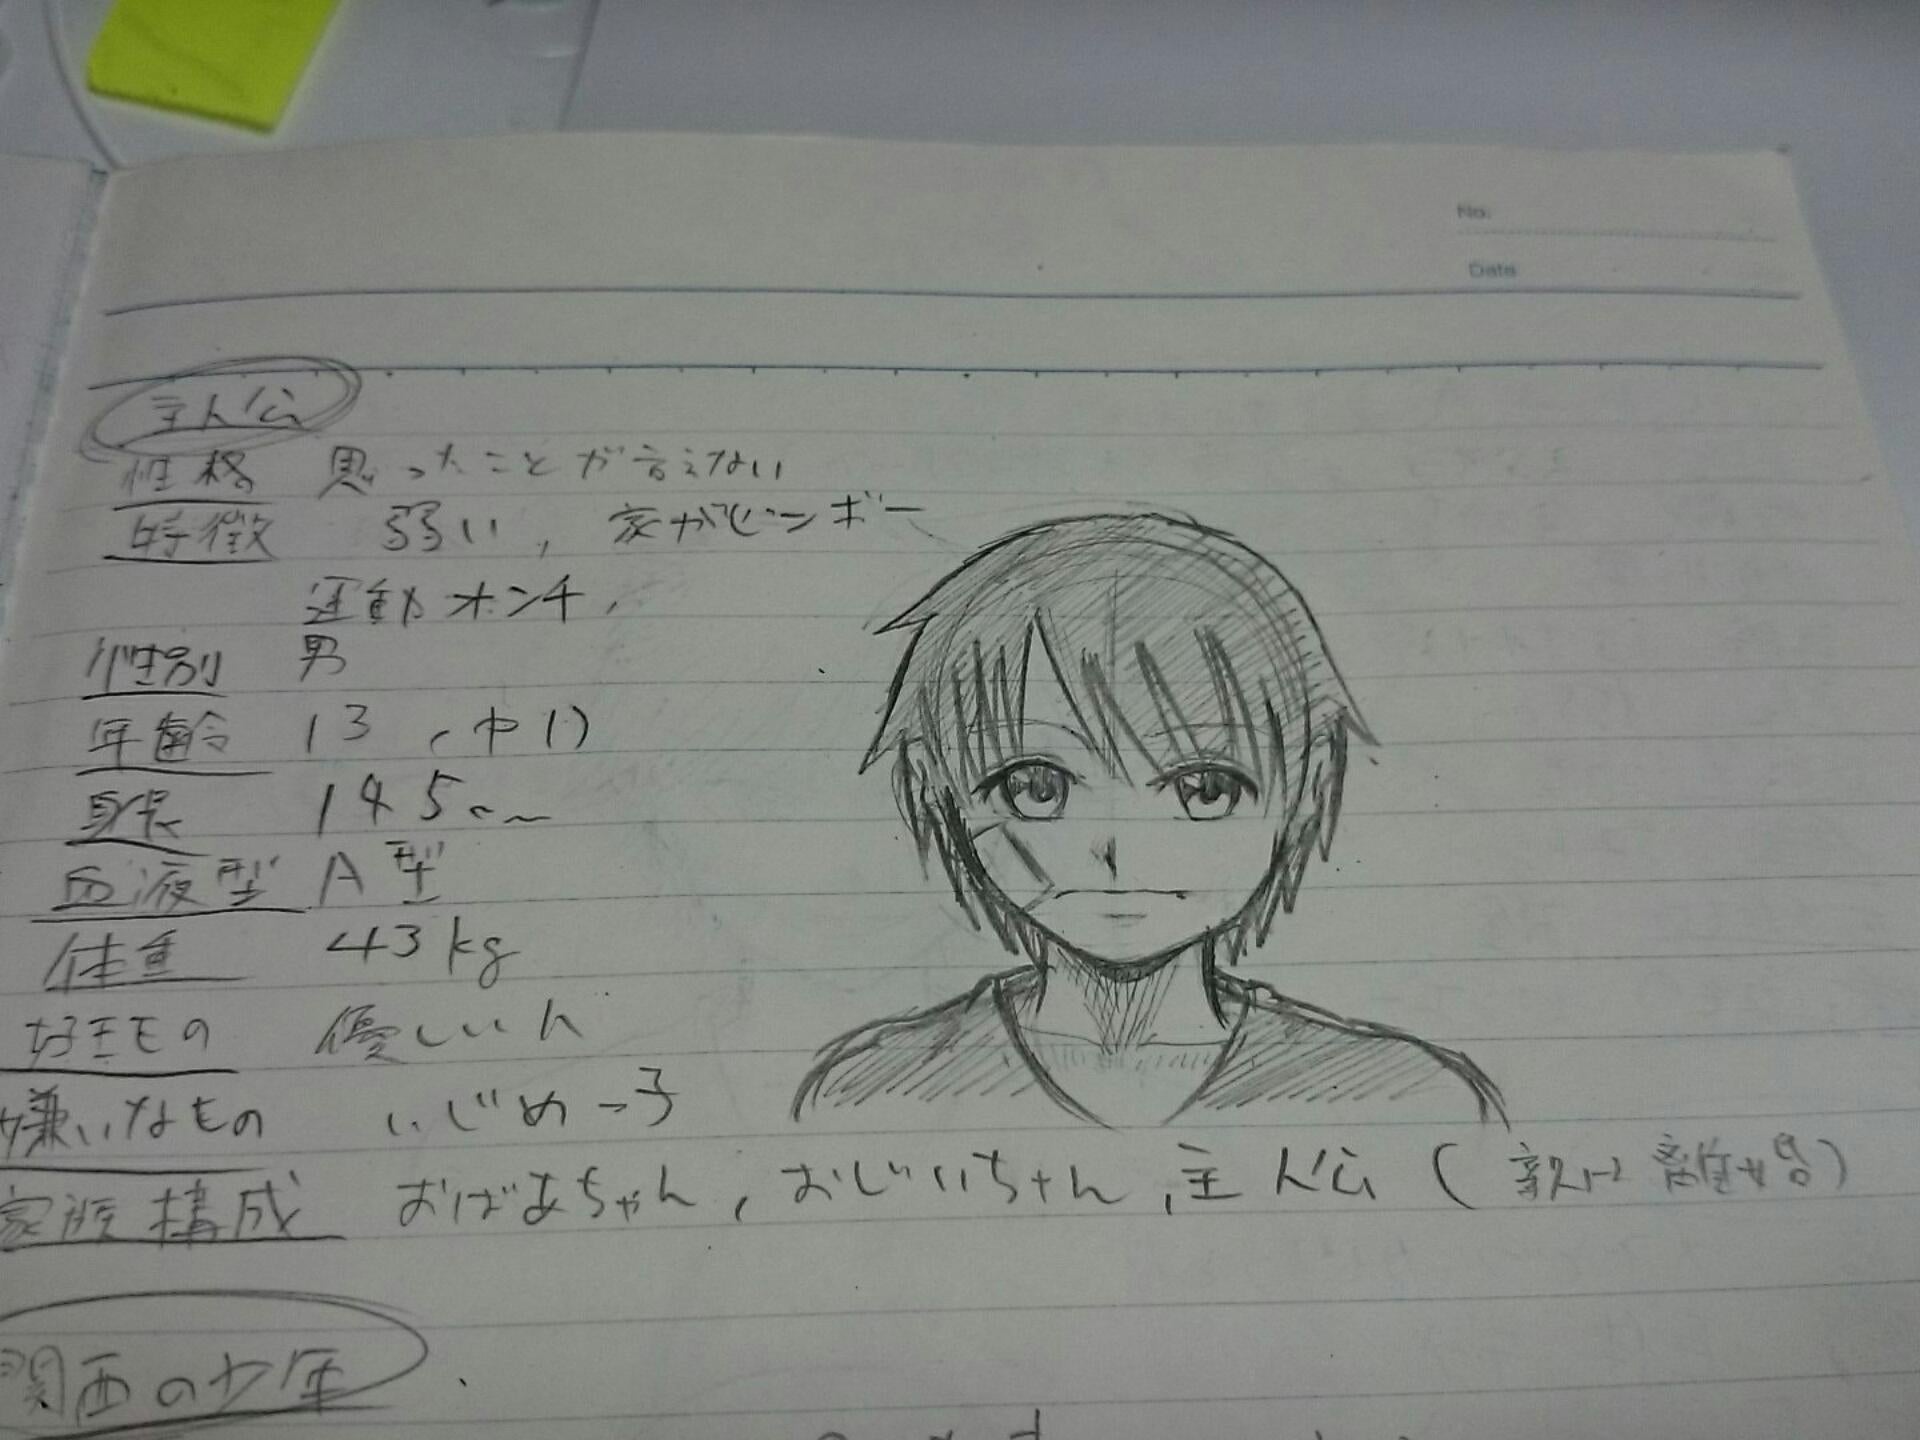 No.
Date
主人公
性格 思ったことが言えない
特徴 弱い, 家がビンボー
運動オンチ,
性別 男
年齢 13, 中1)
身長 145cm
血液型 A型
体重 43kg
好きもの 優しい人
嫌いなもの いじめっ子
家族構成 おばあちゃん, おじいちゃん, 主人公 (親は離婚)
関西の少年